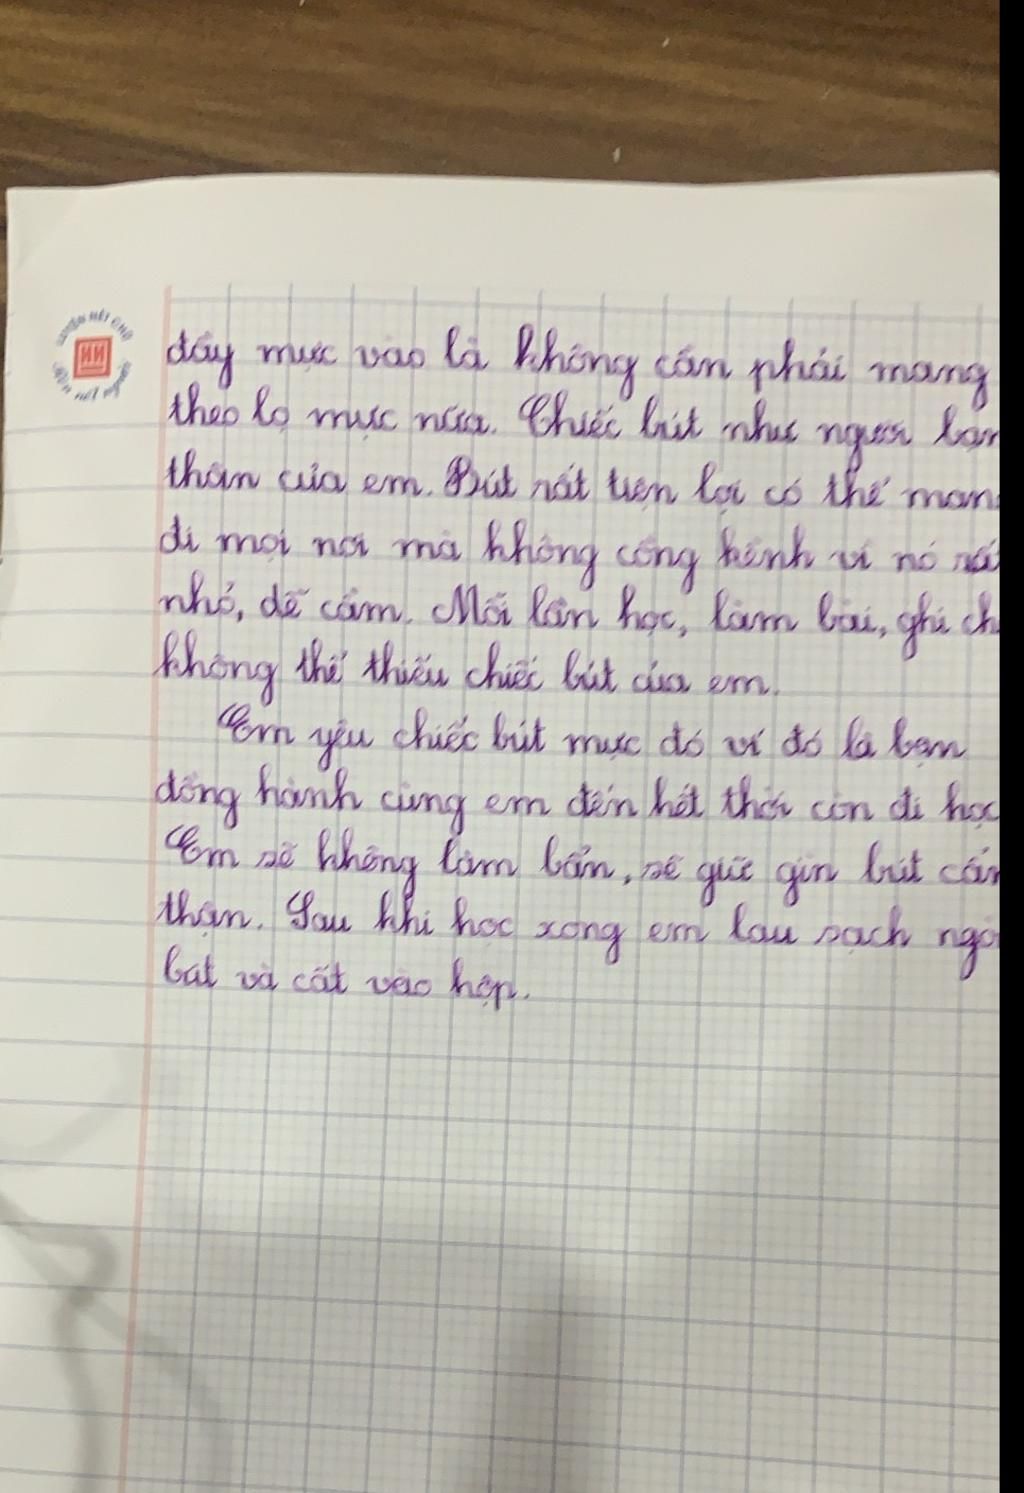 đầy mực vào là không cần phải mang
theo lọ mực nữa. Chiếc bút như người bạn
thân của em. Bút rất tiện lợi có thể man
đi mọi nơi mà không cồng kềnh vì nó rấ
nhỏ, dễ cầm. Mỗi lần học, làm bài, ghi ch
không thể thiếu chiếc bút của em.
Em yêu chiếc bút mực đó vì đó là bạn
đồng hành cùng em đến hết thời còn đi học
Em sẽ không làm bẩn, sẽ giữ gìn bút cẩn
thận. Sau khi học xong em lau sạch ngò
bút và cất vào hộp.